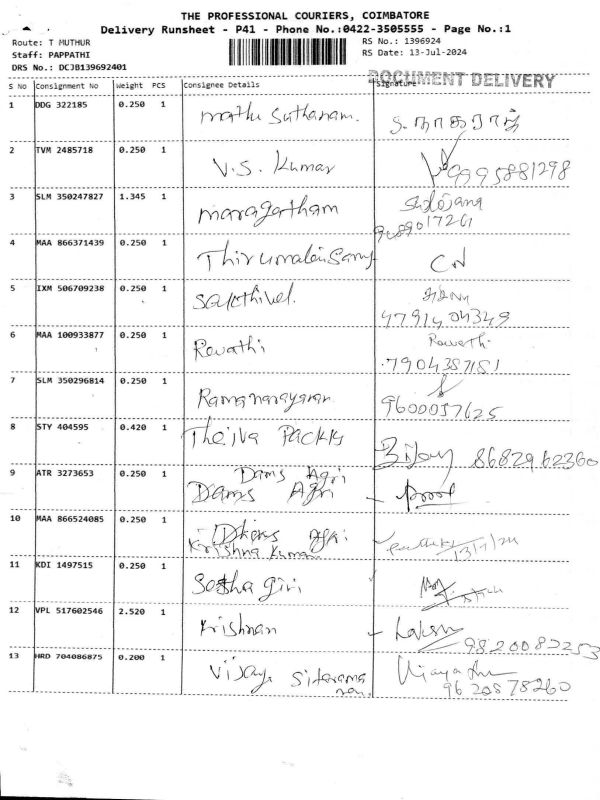 THE PROFESSIONAL COURIERS, COIMBATORE
Delivery Runsheet - P41 - Phone No.:0422-3505555 - Page No.:1
Route: T MUTHUR
RS No.: 1396924
Staff: PAPPATHI
RS Date: 13-Jul-2024
DRS No.: DCJB139692401
DOCUMENT DELIVERY
S No Consignment No Weight PCS Consignee Details Signature
1 DDG 322185 0.250 1 mathu Suthanam. S. நாகராஜ்
2 TVM 2485718 0.250 1 V.S. Kumar 9995881298
3 SLM 350247827 1.345 1 maragatham
4 MAA 866371439 0.250 1 Thirumalai Samy
5 IXM 506709238 0.250 1 Sakthivel.
6 MAA 100933877 0.250 1 Revathi Revathi
7904387151
7 SLM 350296814 0.250 1 Ramanarayanan 9600057625
8 STY 404595 0.420 1 Packks 8682962360
9 ATR 3273653 0.250 1 Dams Agri
Dams Agri proof
10 MAA 866524085 0.250 1 Agri
Krishna Kumar 13/7/24
11 KDI 1497515 0.250 1 Seshagiri
12 VPL 517602546 2.520 1 Krishnan
9820082253
13 HRD 704086875 0.200 1 Vijaya Sitarama
9620578260